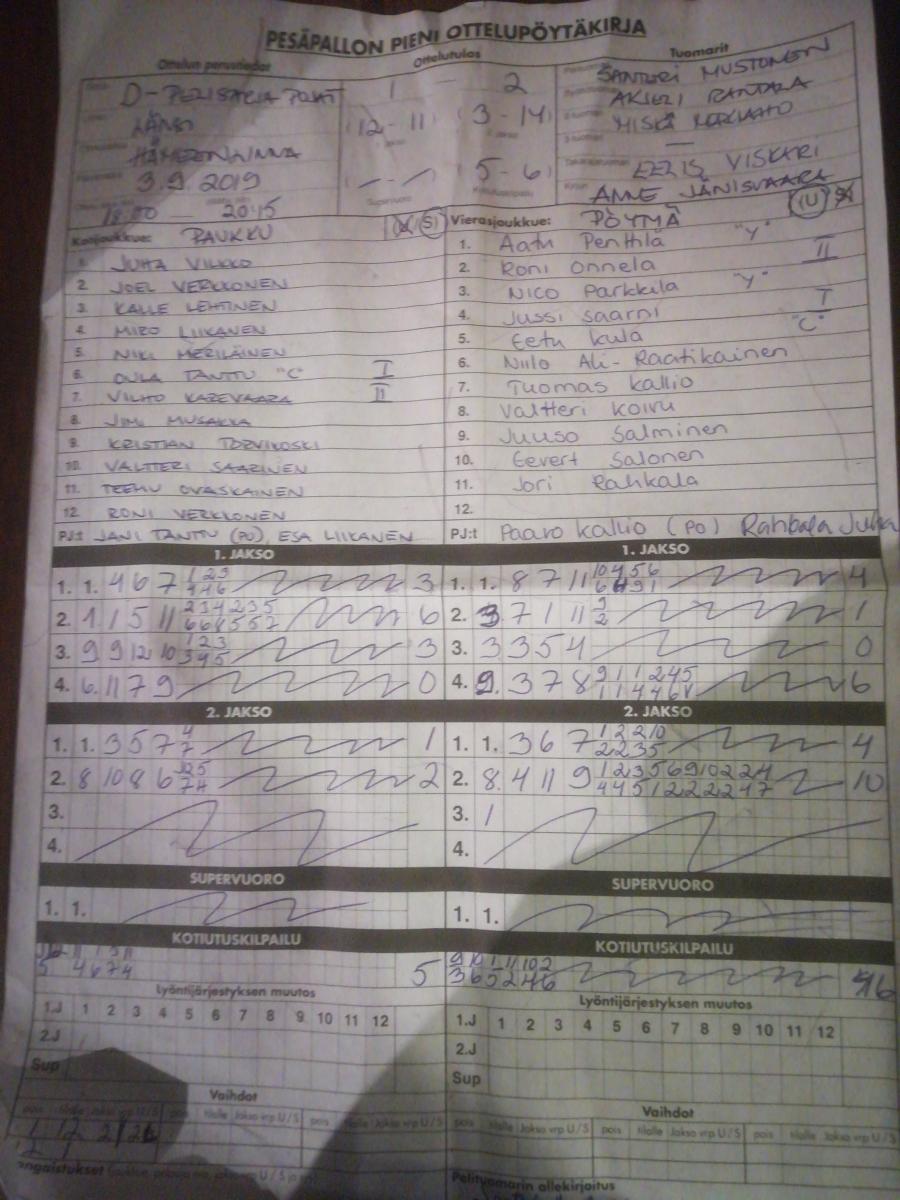 PESÄPALLON PIENI OTTELUPÖYTÄKIRJA
Ottelun perustiedot
Ottelutulos
Tuomarit
D-PELISARJA POJAT
LÄNSI
HÄMEENLINNA
3.9.2019
18:00 — 20:15
1 — 2
(12 - 11) (3 - 14)
5 - 6
Supervuoro
SANTERI MUSTONEN
AKSELI RANTALA
MISKA
—
EELIS VISKARI
ANNE JÄNISVAARA
Kotijoukkue: PAUKKU (S)
1. JUHA VILKKO
2. JOEL VERKKONEN
3. KALLE LEHTINEN
4. MIRO LIIKANEN
5. NIKI MERILÄINEN
6. OULA TANTTU "C" I
7. VILHO KAREVAARA II
8. JIMI MUSAKKA
9. KRISTIAN TORVIKOSKI
10. VALTTERI SAARINEN
11. TEEMU OVASKAINEN
12. RONI VERKKONEN
PJ:t JANI TANTTU (PO), ESA LIIKANEN
Vierasjoukkue: PÖYMÄ (U)
1. Aatu Penttilä "Y"
2. Roni Onnela II
3. Nico Parkkila "Y"
4. Jussi Saarni I
5. Eetu Kula "C"
6. Niilo Ali-Raatikainen
7. Tuomas Kallio
8. Valtteri Koivu
9. Juuso Salminen
10. Eevert Salonen
11. Jori Rahkala
12.
PJ:t Paavo Kallio (PO) Rahkala Juha
1. JAKSO
1. 1. 4 6 7 1 2 3 3
4 4 6
2. 1 1 5 11 2 3 4 2 3 5 6
6 6 4 5 5 7
3. 9 9 12 10 1 2 3 3
3 4 5
4. 6. 11 7 9 0
1. JAKSO
1. 1. 8 7 11 10 4 5 6 4
2. 3 7 1 11 9 1
2
3. 3 3 5 4 0
4. 9. 3 7 8 9 1 1 2 4 5 6
1 1 4 4 6 V
2. JAKSO
1. 1. 3 5 7 4 1
7
2. 8 10 8 6 10 5 2
7 4
3.
4.
2. JAKSO
1. 1. 3 6 7 1 2 2 10 4
2 2 3 5
2. 8. 4 11 9 1 2 3 5 6 9 10 2 2 4 10
4 4 5 1 2 2 2 2 4 7
3. 1
4.
SUPERVUORO
1. 1.
SUPERVUORO
1. 1.
KOTIUTUSKILPAILU
5 4 6 7 4 5
KOTIUTUSKILPAILU
9 10 1 11 10 2
3 6 5 2 4 6 6
Lyöntijärjestyksen muutos
1.J 1 2 3 4 5 6 7 8 9 10 11 12
2.J
Sup
Lyöntijärjestyksen muutos
1.J 1 2 3 4 5 6 7 8 9 10 11 12
2.J
Sup
Vaihdot
pois tilalle Jakso vrp U/S pois tilalle Jakso vrp U/S pois tilalle Jakso vrp U/S
1 12 2
Vaihdot
pois tilalle Jakso vrp U/S pois tilalle Jakso vrp U/S pois tilalle Jakso vrp U/S
Pelituomarin allekirjoitus